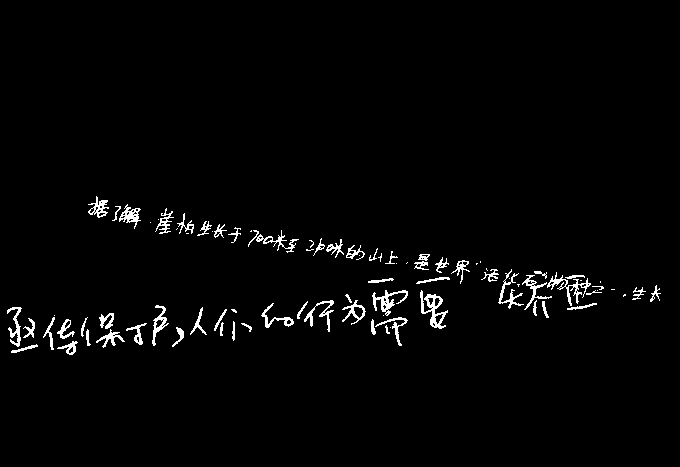 据了解,崖柏生长于700米至2100米的山上,是世界"活化石"物种之一,生长
亟待保护,人们的行为需要